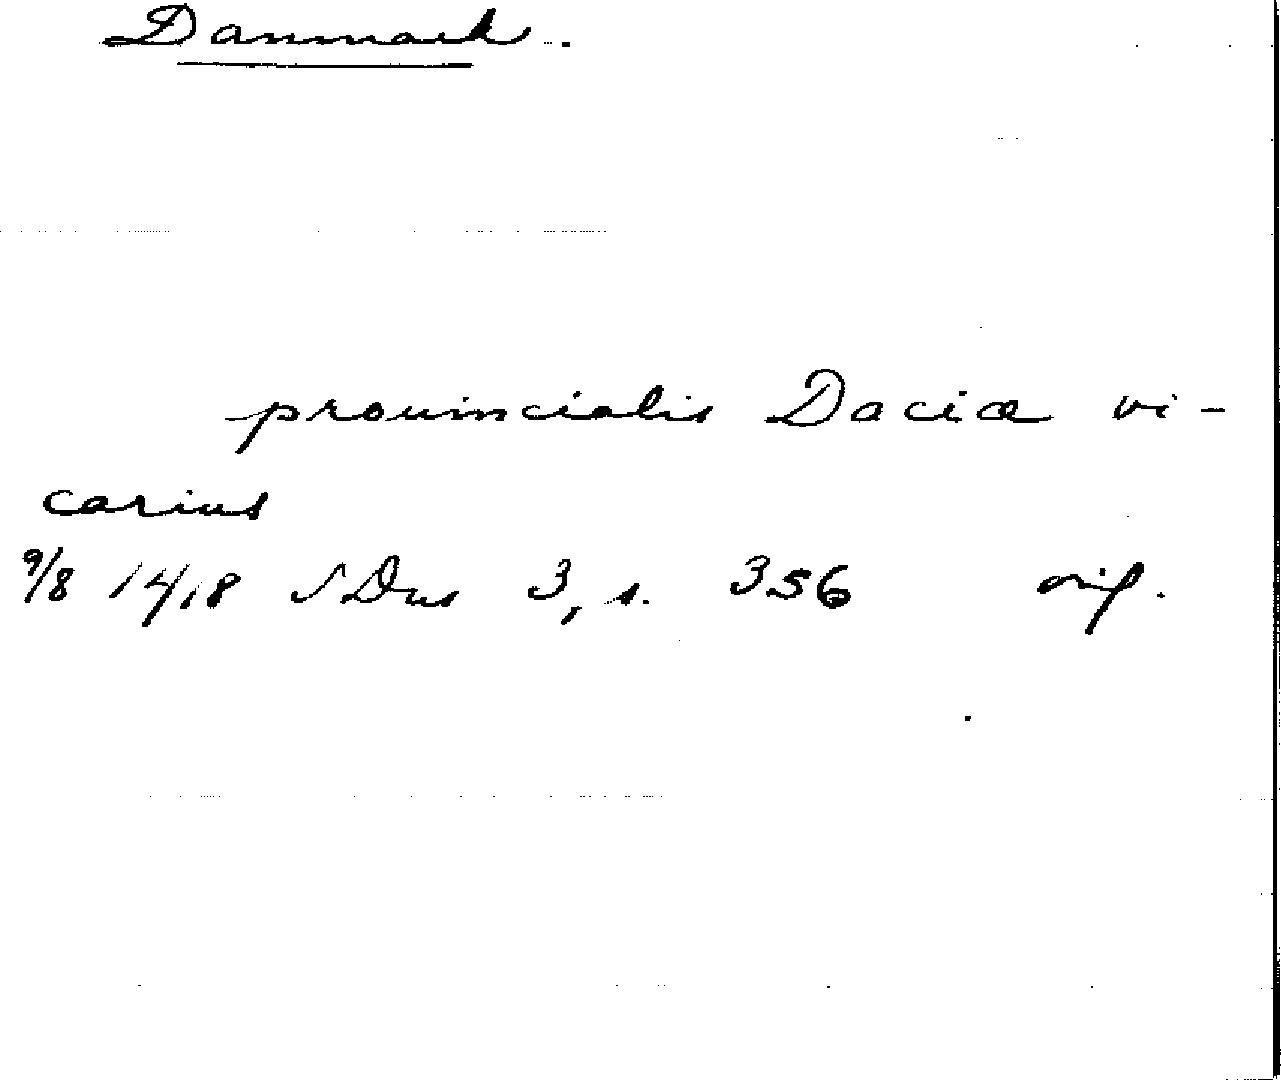 Danmark.
prouincialis Daciæ vi-
carius
9/8 1418 SDns 3, s. 356 orig.